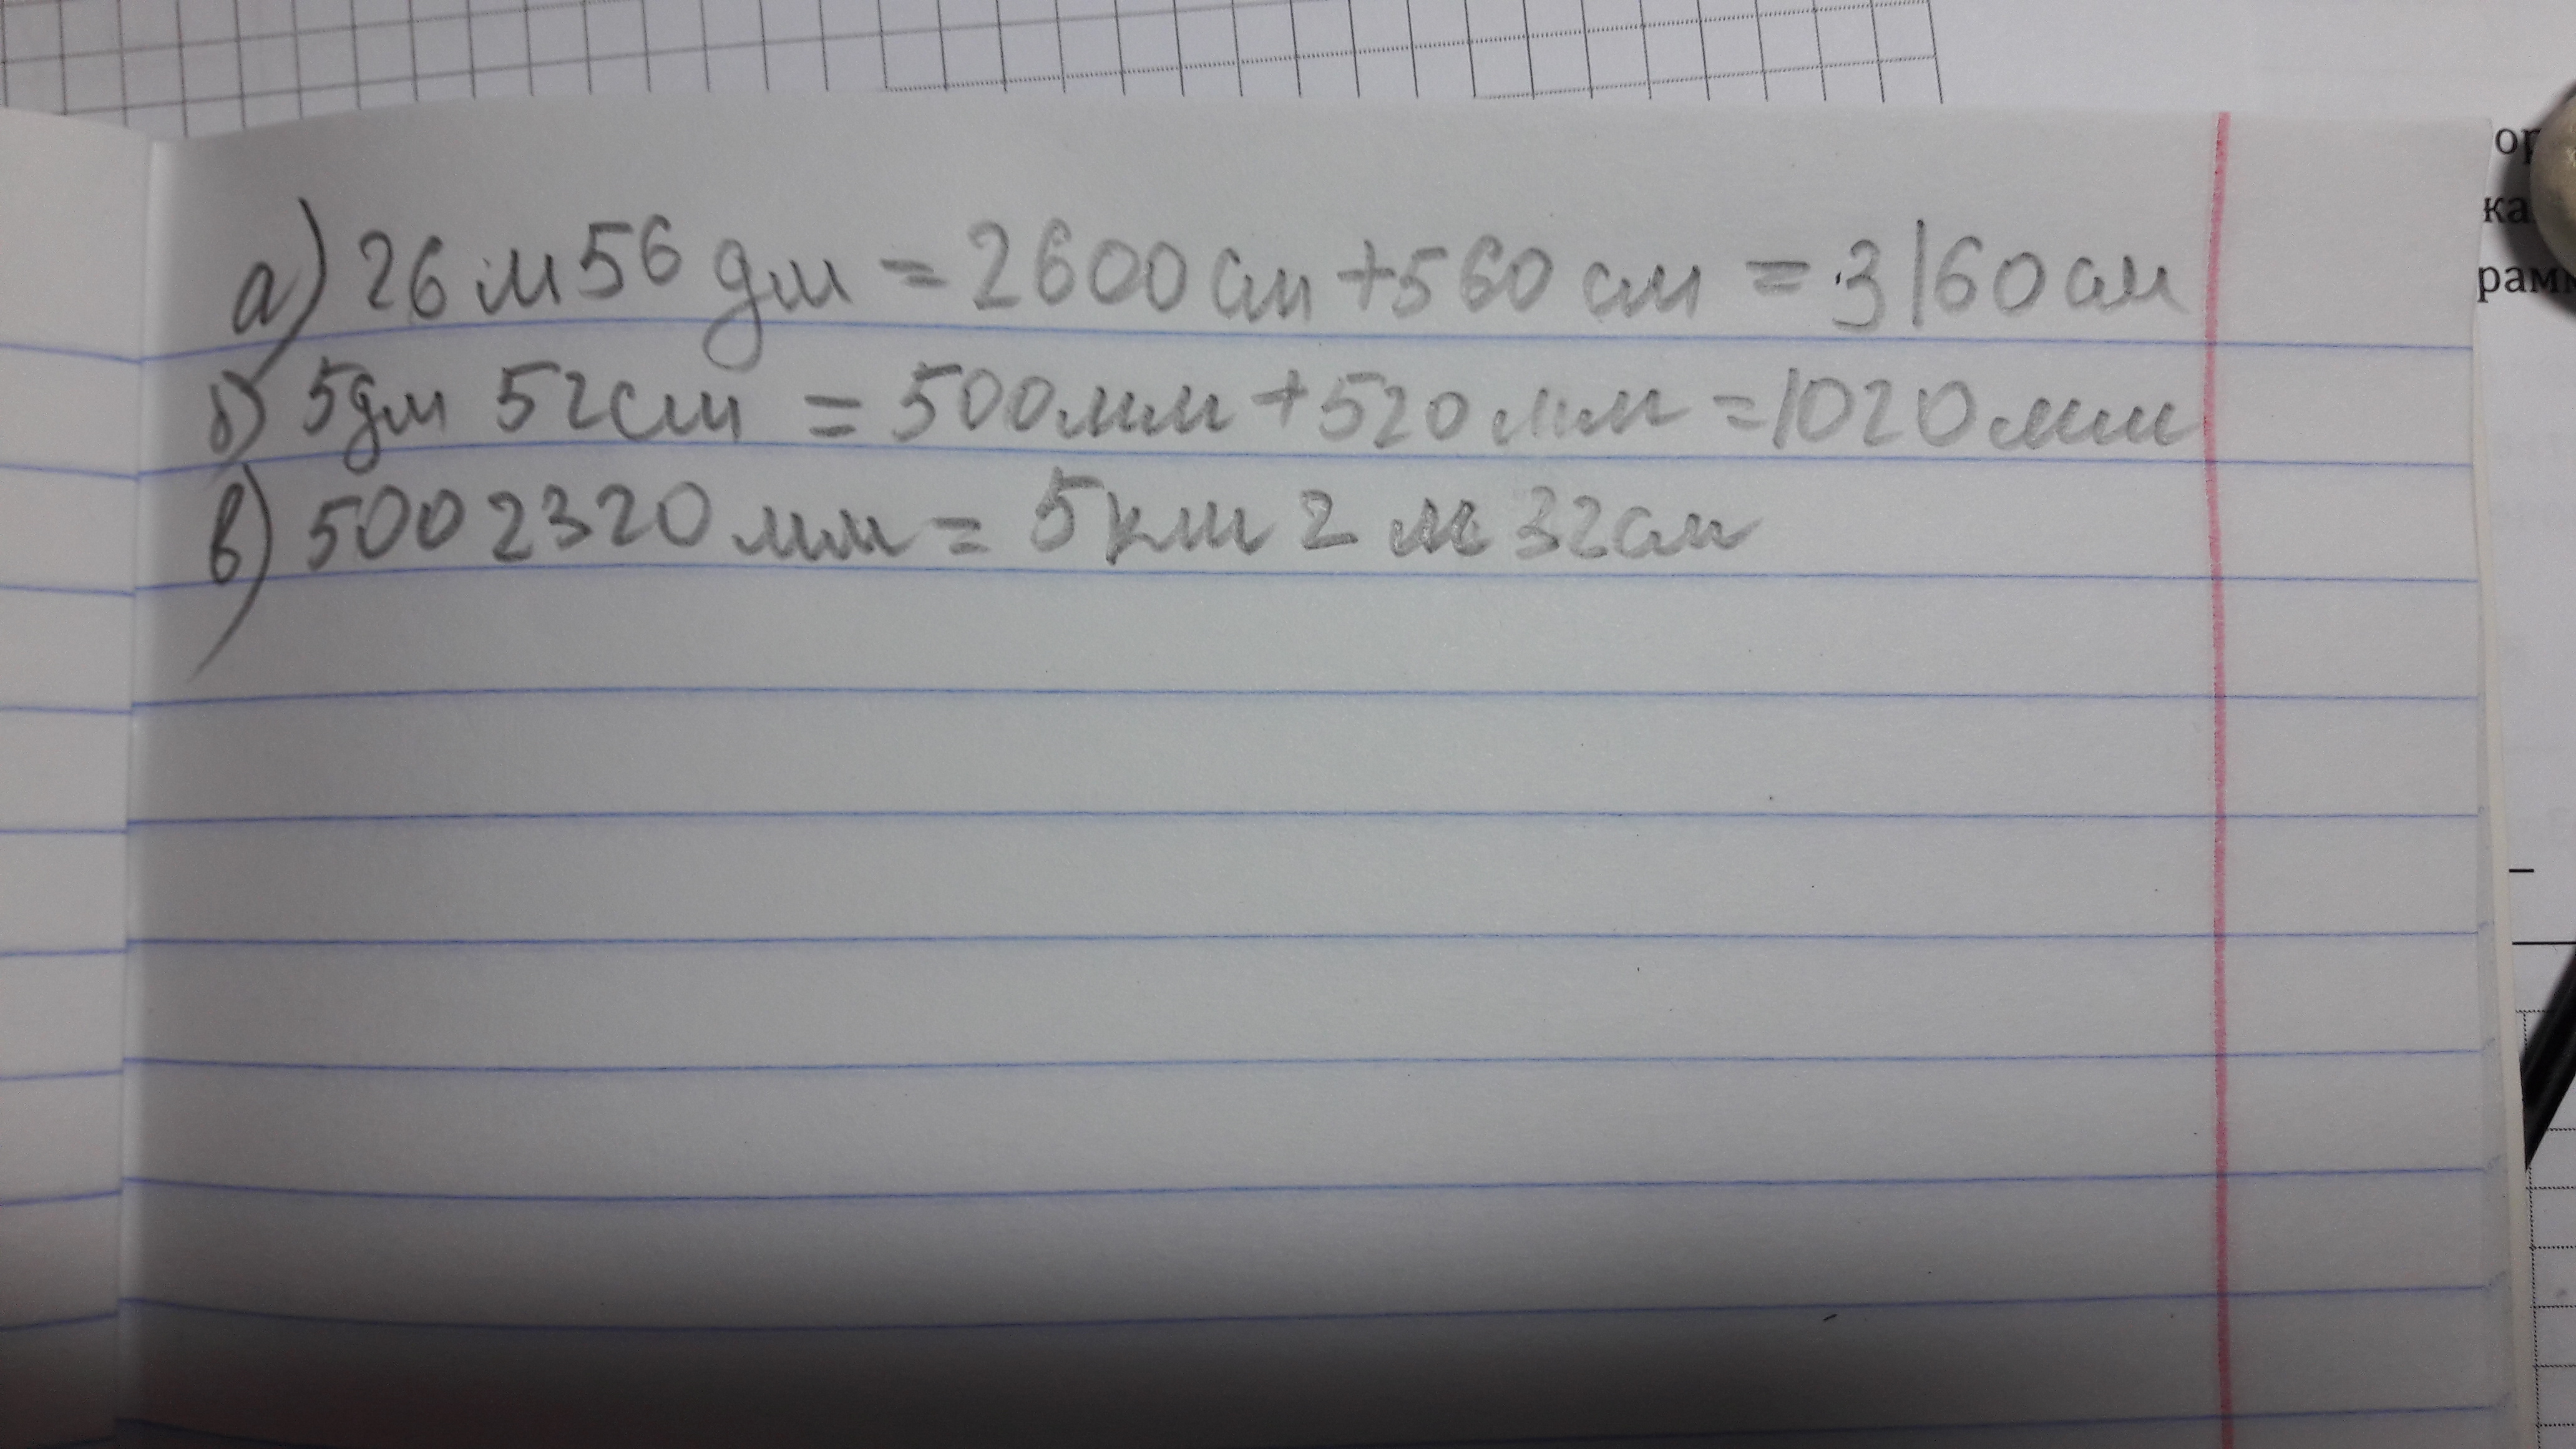 а) 26 м 56 дм = 2600 см + 560 см = 3160 см
б) 5 дм 52 см = 500 мм + 520 мм = 1020 мм
в) 5002320 мм = 5 км 2 м 32 см
ка
рам